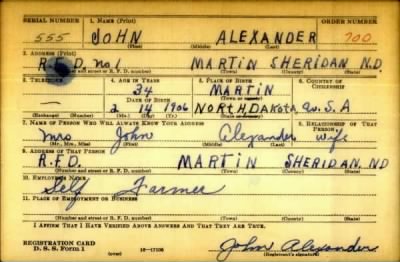 SERIAL NUMBER 1. NAME (Print) ORDER NUMBER
555 JOHN ALEXANDER 700
(First) (Middle) (Last)
2. ADDRESS (Print)
R.F.D. No 1 MARTIN SHERIDAN N.D.
(Number and street or R. F. D. number) (Town) (County) (State)
3. TELEPHONE 4. AGE IN YEARS 5. PLACE OF BIRTH 6. COUNTRY OF CITIZENSHIP
34 MARTIN
DATE OF BIRTH (Town or county)
— 2 14 1906 NORTH DAKOTA U.S.A
(Exchange) (Number) (Mo.) (Day) (Yr.) (State or country)
7. NAME OF PERSON WHO WILL ALWAYS KNOW YOUR ADDRESS 8. RELATIONSHIP OF THAT PERSON
Mrs John Alexander Wife
(Mr., Mrs., Miss) (First) (Middle) (Last)
9. ADDRESS OF THAT PERSON
R.F.D. MARTIN SHERIDAN, ND
(Number and street or R. F. D. number) (Town) (County) (State)
10. EMPLOYER'S NAME
Self Farmer
11. PLACE OF EMPLOYMENT OR BUSINESS
(Number and street or R. F. D. number) (Town) (County) (State)
I AFFIRM THAT I HAVE VERIFIED ABOVE ANSWERS AND THAT THEY ARE TRUE.
REGISTRATION CARD
D. S. S. Form 1 (over) John Alexander
(Registrant's signature)